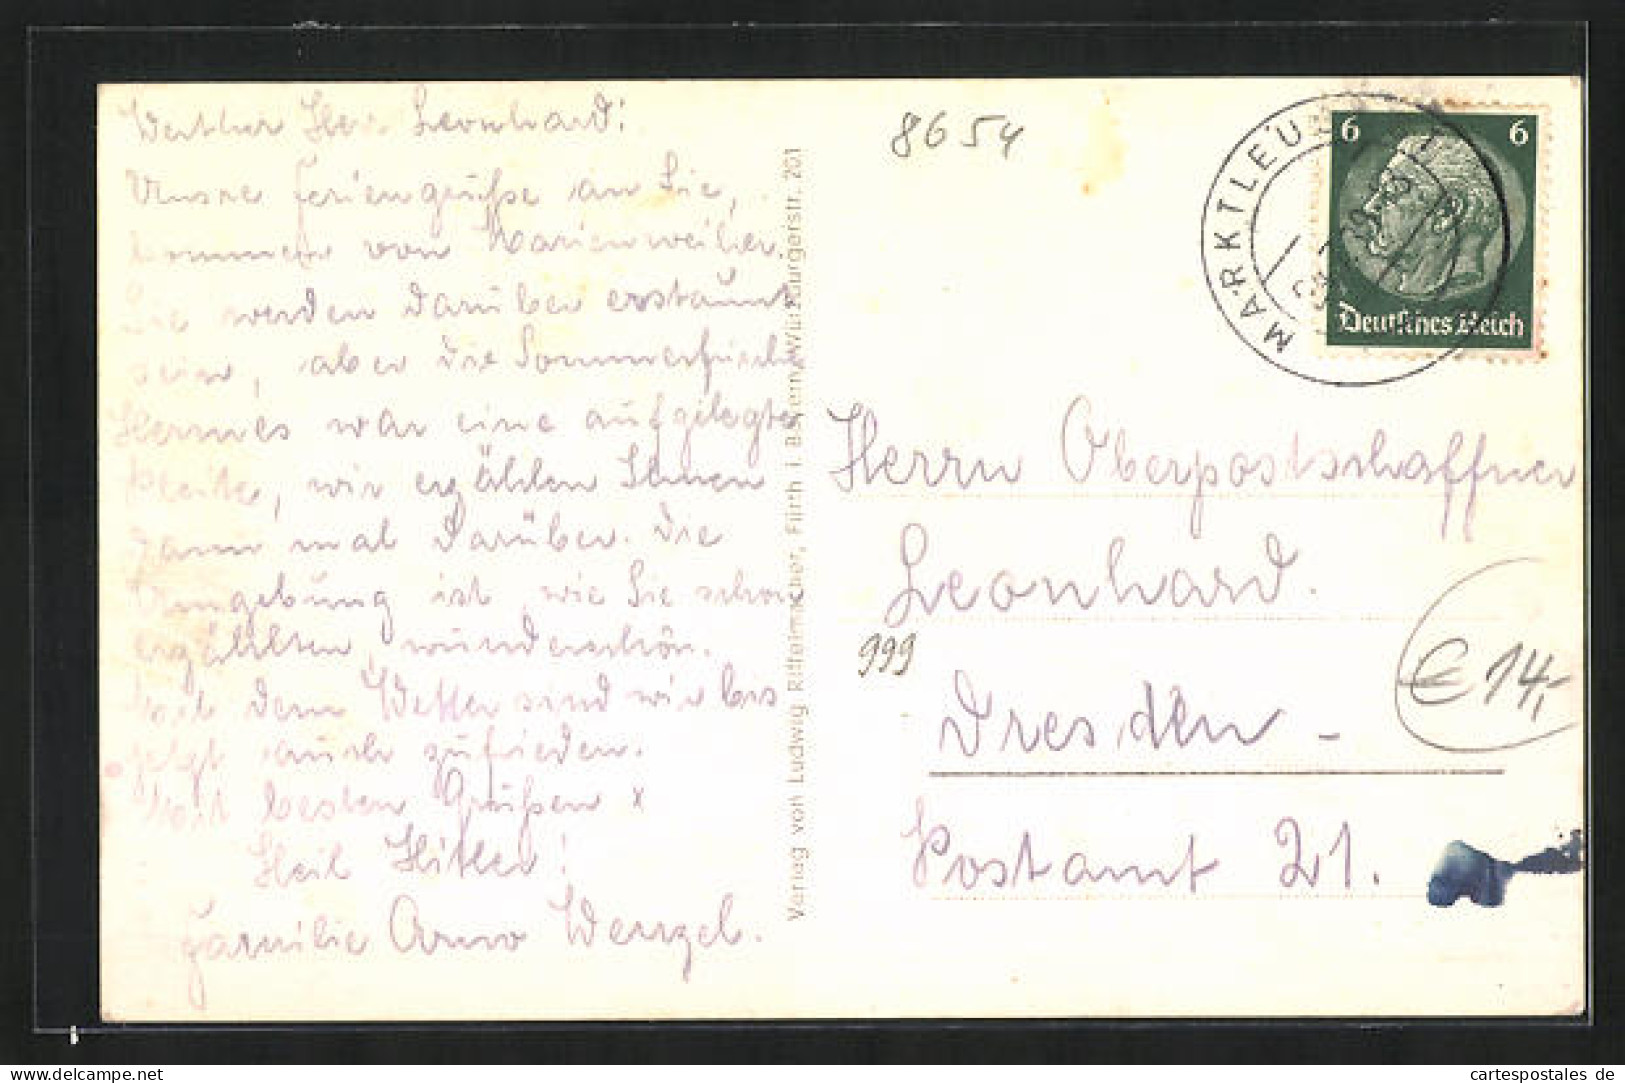 Werther Herr Leonhard!
Unsre Feriengrüße an Sie,
kommen von Marienweiher.
Sie werden darüber erstaunt
sein, aber die Sommerfrische
Hermes war eine aufgelegte
Pleite, wir erzählen Ihnen
dann mal darüber. Die
Umgebung ist, wie Sie schon
erzählten, wunderschön.
Mit dem Wetter sind wir bis
jetzt auch zufrieden.
Mit besten Grüßen x
Heil Hitler!
Familie Arno Wenzel.
Verlag von Ludwig Riffelmacher, Fürth i. Bayern, Würzburgerstr. 201
8654
MARKTLEU
6 6
Deutsches Reich
Herrn Oberpostschaffner
Leonhard.
999
Dresden -
€ 14,-
Postamt 21.
www.cartespostales.de
cartespostales de